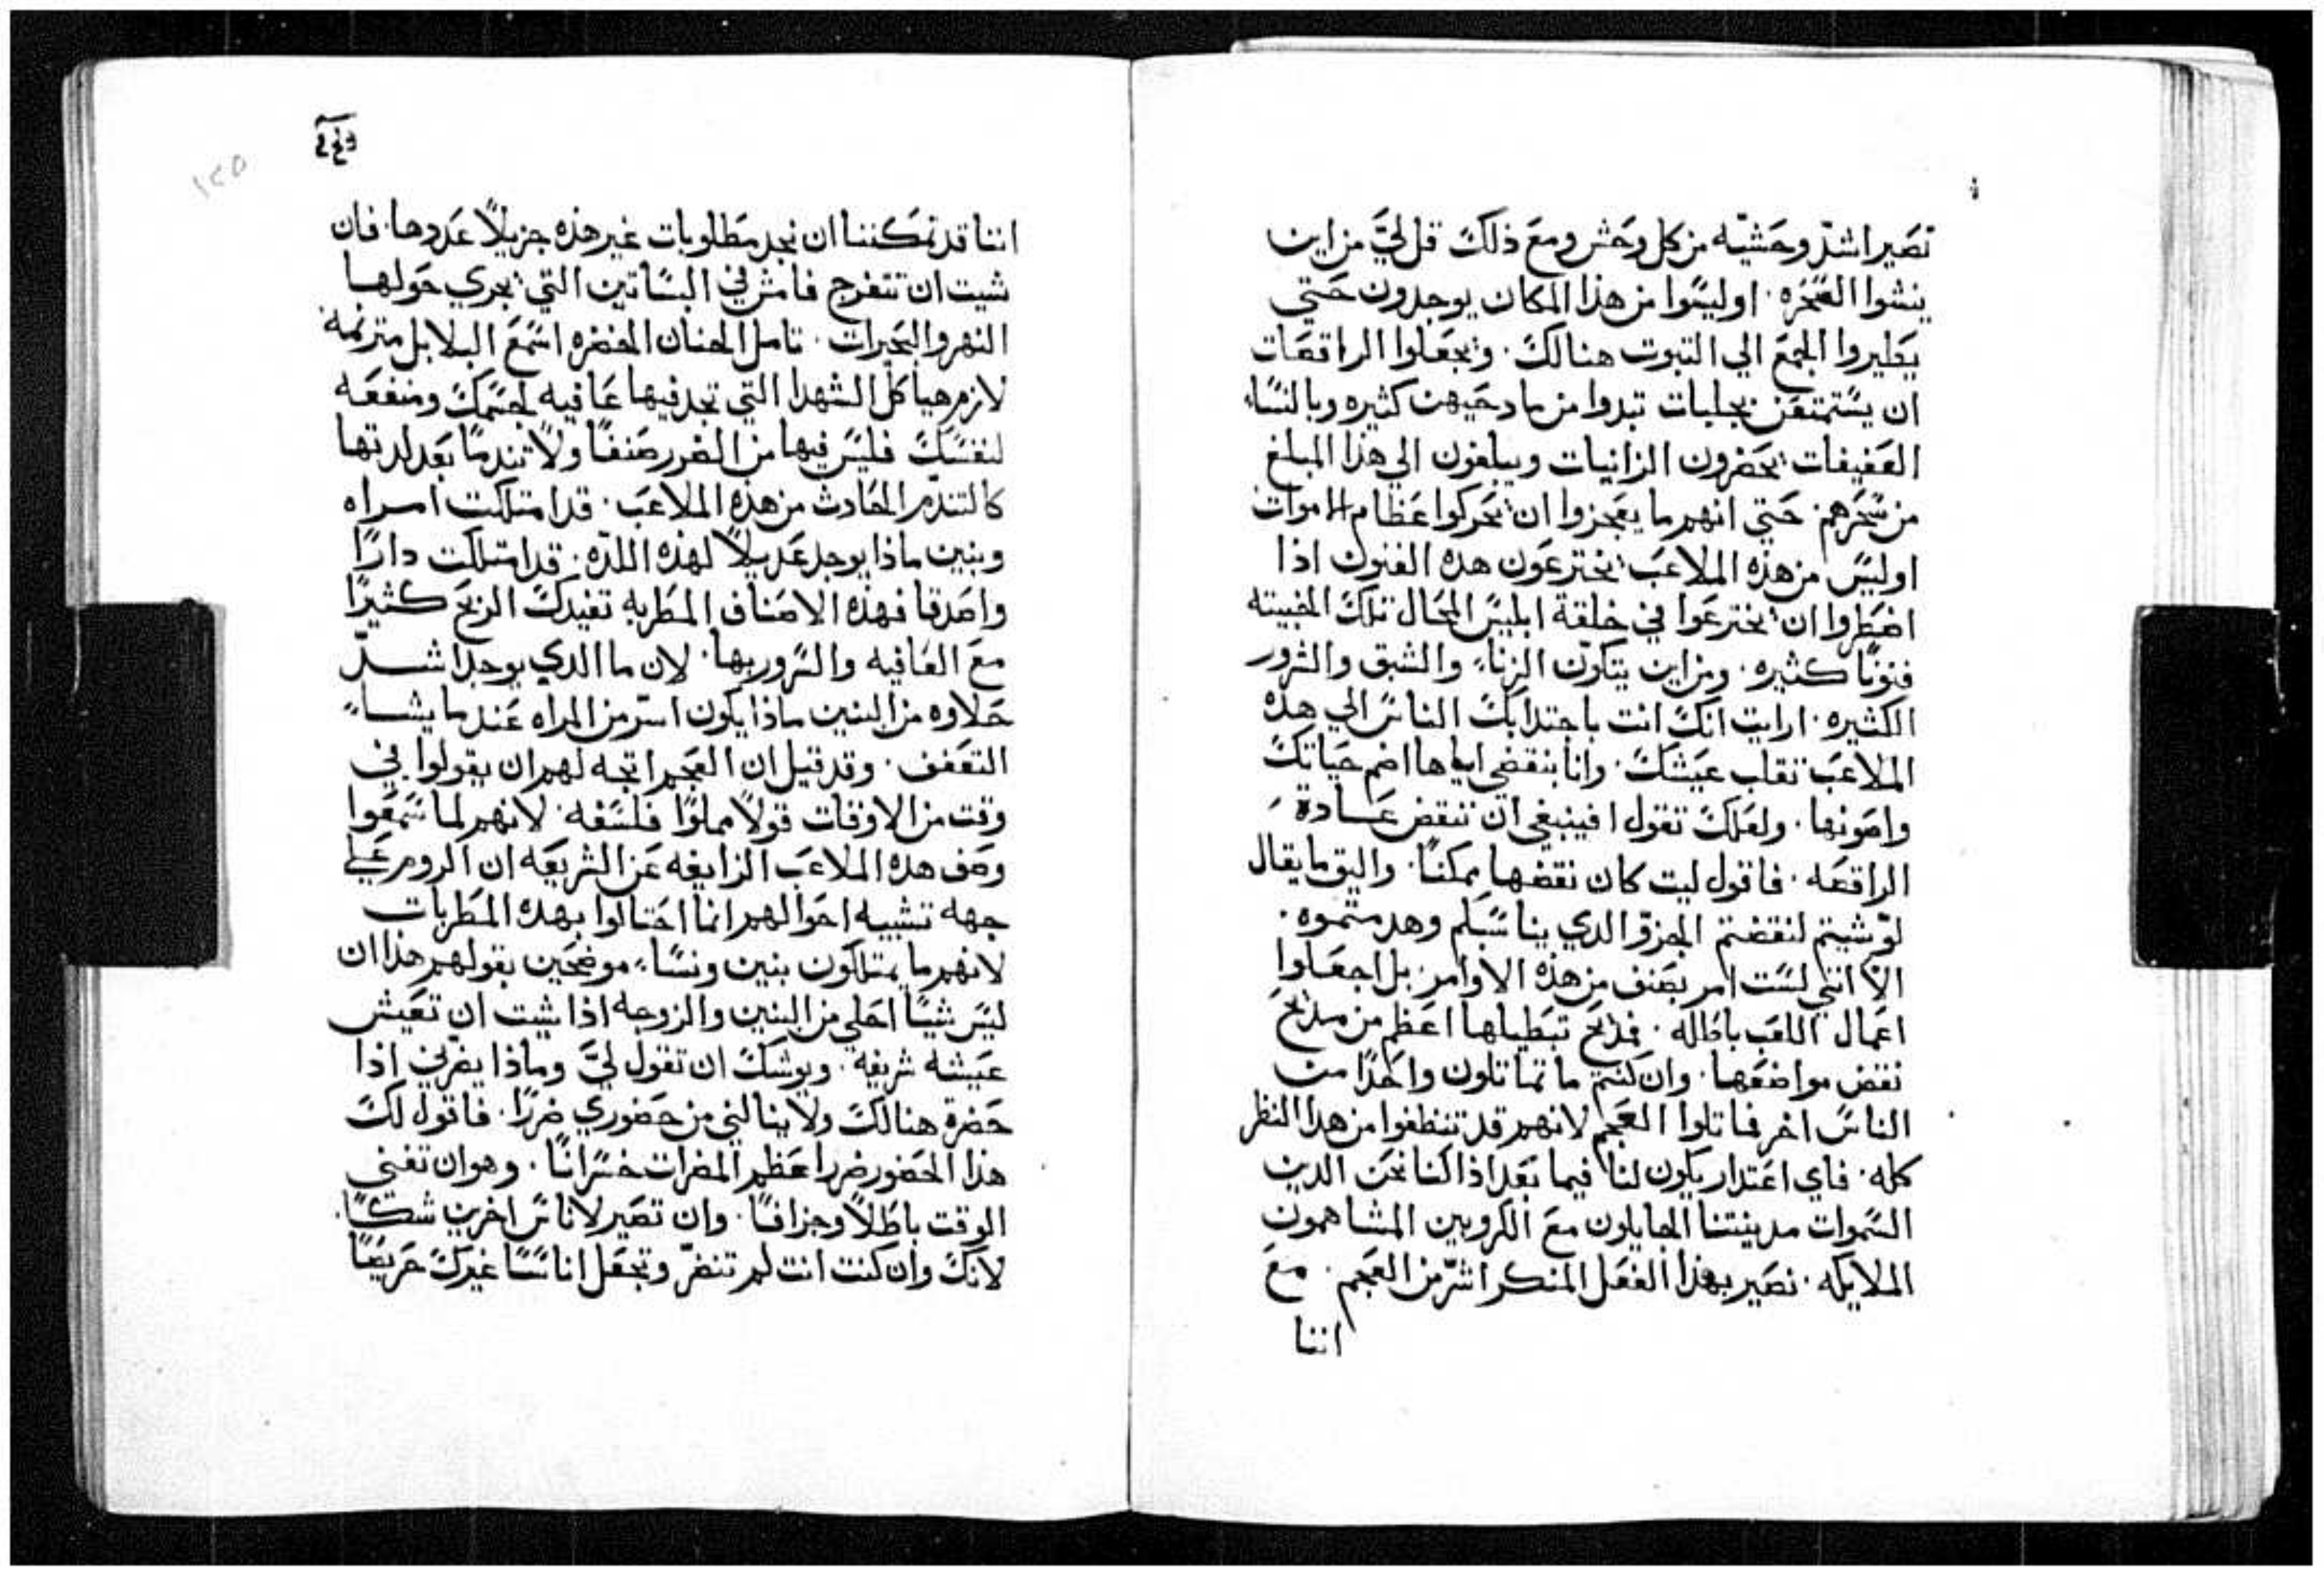 تصير اشدّ وحشيّه من كل وحش ومع ذلك قل ليَّ من اين
ينشوا السحره. اوليسوا من هذا المكان يوجدون حتي
يطيروا الجمع الي التبوت هنالك. ويجعلوا الراقصات
ان يستمتعن بجلبات تبدوا من مادحيهن كثيره وبالنساء
العفيفات يحضرون الزانيات ويبلغون الي هذا المبلغ
من سحرهم. حتي انهم ما يعجزوا ان يحركوا عظام الاموات
اوليس من هذه الملاعب يخترعون هده الفنون اذا
اضطروا ان يخترعوا في خلقة ابليس المحال تلك الخبيته
فنونًا كثيره. ومن اين يتكون الزناء والشبق والشرور
الكثيره. ارايت انك انت باجتدابك الناس الي هذه
الملاعب تقلب عيشك. وانا بنقضي اياها اضم حياتك
واصونها. ولعلك تقول افينبغي ان ننقض عادة
الراقصه. فاقول ليت كان نقضها ممكنًا. واليق ما يقال
لو شيتم لنقضتم الجزوّ الدي يناسبكم وهدمتموه.
الّا انني لست امر بصنف من هذه الاوامر. بل اجعلوا
اعمال اللعب باطله. فمدايح تبطيلها اعظم من مدايح
نقض مواضعها. وان كنتم ما تماتلون واحدًا من
الناس اخر فماتلوا العجم لانهم قد تنظفوا من هدا النظر
كله. فاي اعتدار يكون لنا فيما بعد اذا كنا نحن الدين
السموات مدينتنا الجايلون مع الكروبين المشاهمون
الملايكه. نصير بهذا الفعل المنكر اشرّ من العجم. مع
اننا
اننا قد تمكننا ان نجد مطلوبات غير هذه جزيلًا عددها. فان
شيت ان تتفرج فامش في البساتين التي يجري حولها
النهر والبحيرات. تامل الجنان الخضره اسمع البلابل مترنمه
لازم هياكل الشهدا التي تجد فيها عافيه لجسمك ومنفعه
لنفسك فليس فيها من الضرر صنفًا ولا تندمًا بعد لدتها
كالتندم الحادث من هذه الملاعب. قد امتلكت امراه
وبنين ماذا يوجد عديلًا لهذه اللذه. قد امتلكت دارًا
واصدقا فهذه الاصناف المطربه تفيدك الربح كثيرًا
مع العافيه والسرور بها. لان ما الدي يوجد اشدّ
حلاوه من البنين ماذا يكون اسرّ من المراه عند ما يشاء
التعفف. وقد قيل ان العجم اتجه لهم ان يقولوا في
وقت من الاوقات قولًا مملوًا فلسفه. لانهم لما سمعوا
وصف هده الملاعب الزايغه عن الشريعه ان الروم علي
جهه تشبيه احوالهم انما احتالوا بهده المطربات
لانهم ما يمتلكون بنين ونساء. موضحين بقولهم هذا ان
ليس شيًا احلي من البنين والزوجه اذا شيت ان تعيش
عيشه شريفه. ويوشك ان تقول ليَّ وماذا يضرني اذا
حضرة هنالك ولا ينالني من حضوري ضررًا. فاقول لك
هذا الحضور ضررا عظم المضرات خسرانًا. وهو ان تفني
الوقت باطلًا وجزافًا. وان تصير لاناس اخرين شكًا.
لانك وان كنت انت لم تنضرّ وتجعل اناسًا غيرك حريصًا